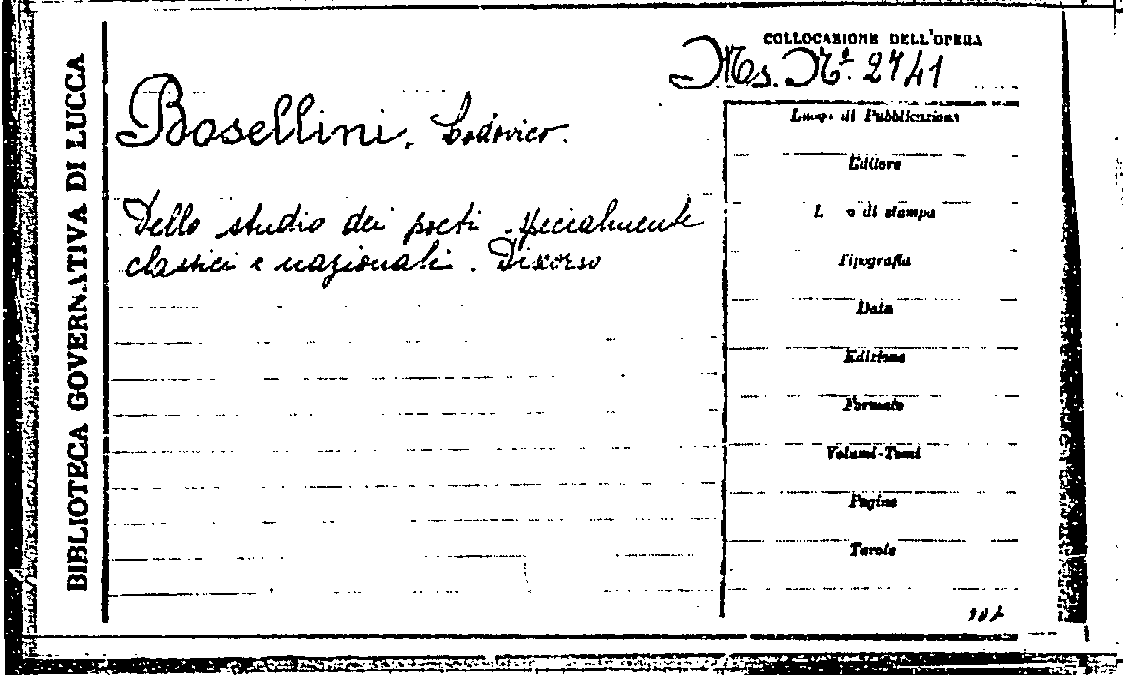 BIBLIOTECA GOVERNATIVA DI LUCCA
COLLOCAZIONE DELL'OPERA
Ms. Nº. 2741
Bosellini, Lodovico.
Dello studio dei poeti specialmente
classici e nazionali. Discorso
Luogo di Pubblicazione
Editore
L o di stampa
Tipografia
Data
Edizione
Formato
Volumi-Tomi
Pagine
Tavole